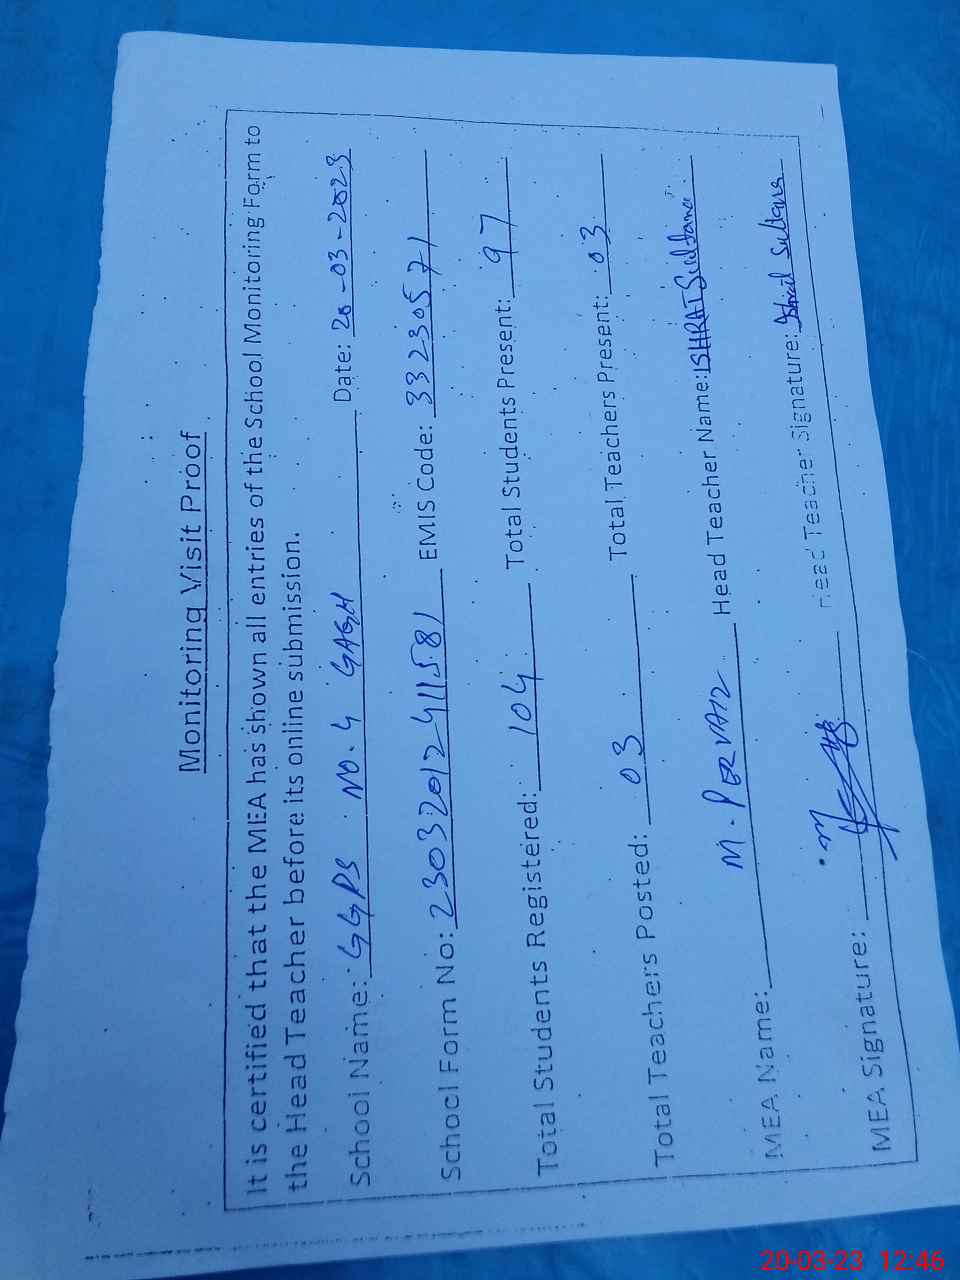 Monitoring Visit Proof
It is certified that the MEA has shown all entries of the School Monitoring Form to
the Head Teacher before its online submission.
School Name: GGPS NO. 4 GAGH Date: 20-03-2023
School Form No: 2303201241158 1 EMIS Code: 33230571
Total Students Registered: 104 Total Students Present: 97
Total Teachers Posted: 03 Total Teachers Present: 03
MEA Name: M. PERVAIZ Head Teacher Name: ISHRAT Sultana
MEA Signature: Head Teacher Signature: Ishrat Sultana
20-03-23 12:46